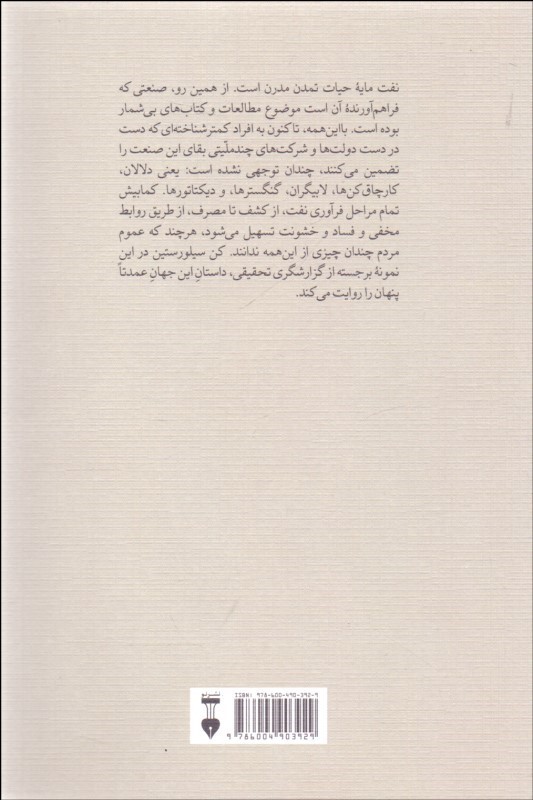 نفت مایهٔ حیات تمدن مدرن است. از همین رو، صنعتی که
فراهم‌آورندهٔ آن است موضوع مطالعات و کتاب‌های بی‌شمار
بوده است. بااین‌همه، تاکنون به افراد کمترشناخته‌ای که دست
در دست دولت‌ها و شرکت‌های چندملّیتی بقای این صنعت را
تضمین می‌کنند، چندان توجهی نشده است: یعنی دلالان،
کارچاق‌کن‌ها، لابیگران، گنگسترها، و دیکتاتورها. کمابیش
تمام مراحل فرآوری نفت، از کشف تا مصرف، از طریق روابط
مخفی و فساد و خشونت تسهیل می‌شود، هرچند که عموم
مردم چندان چیزی از این‌همه ندانند. کن سیلورستین در این
نمونهٔ برجسته از گزارشگری تحقیقی، داستانِ این جهانِ عمدتاً
پنهان را روایت می‌کند.
نشرنو
ISBN: 978-600-490-392-9
9 786004 903929